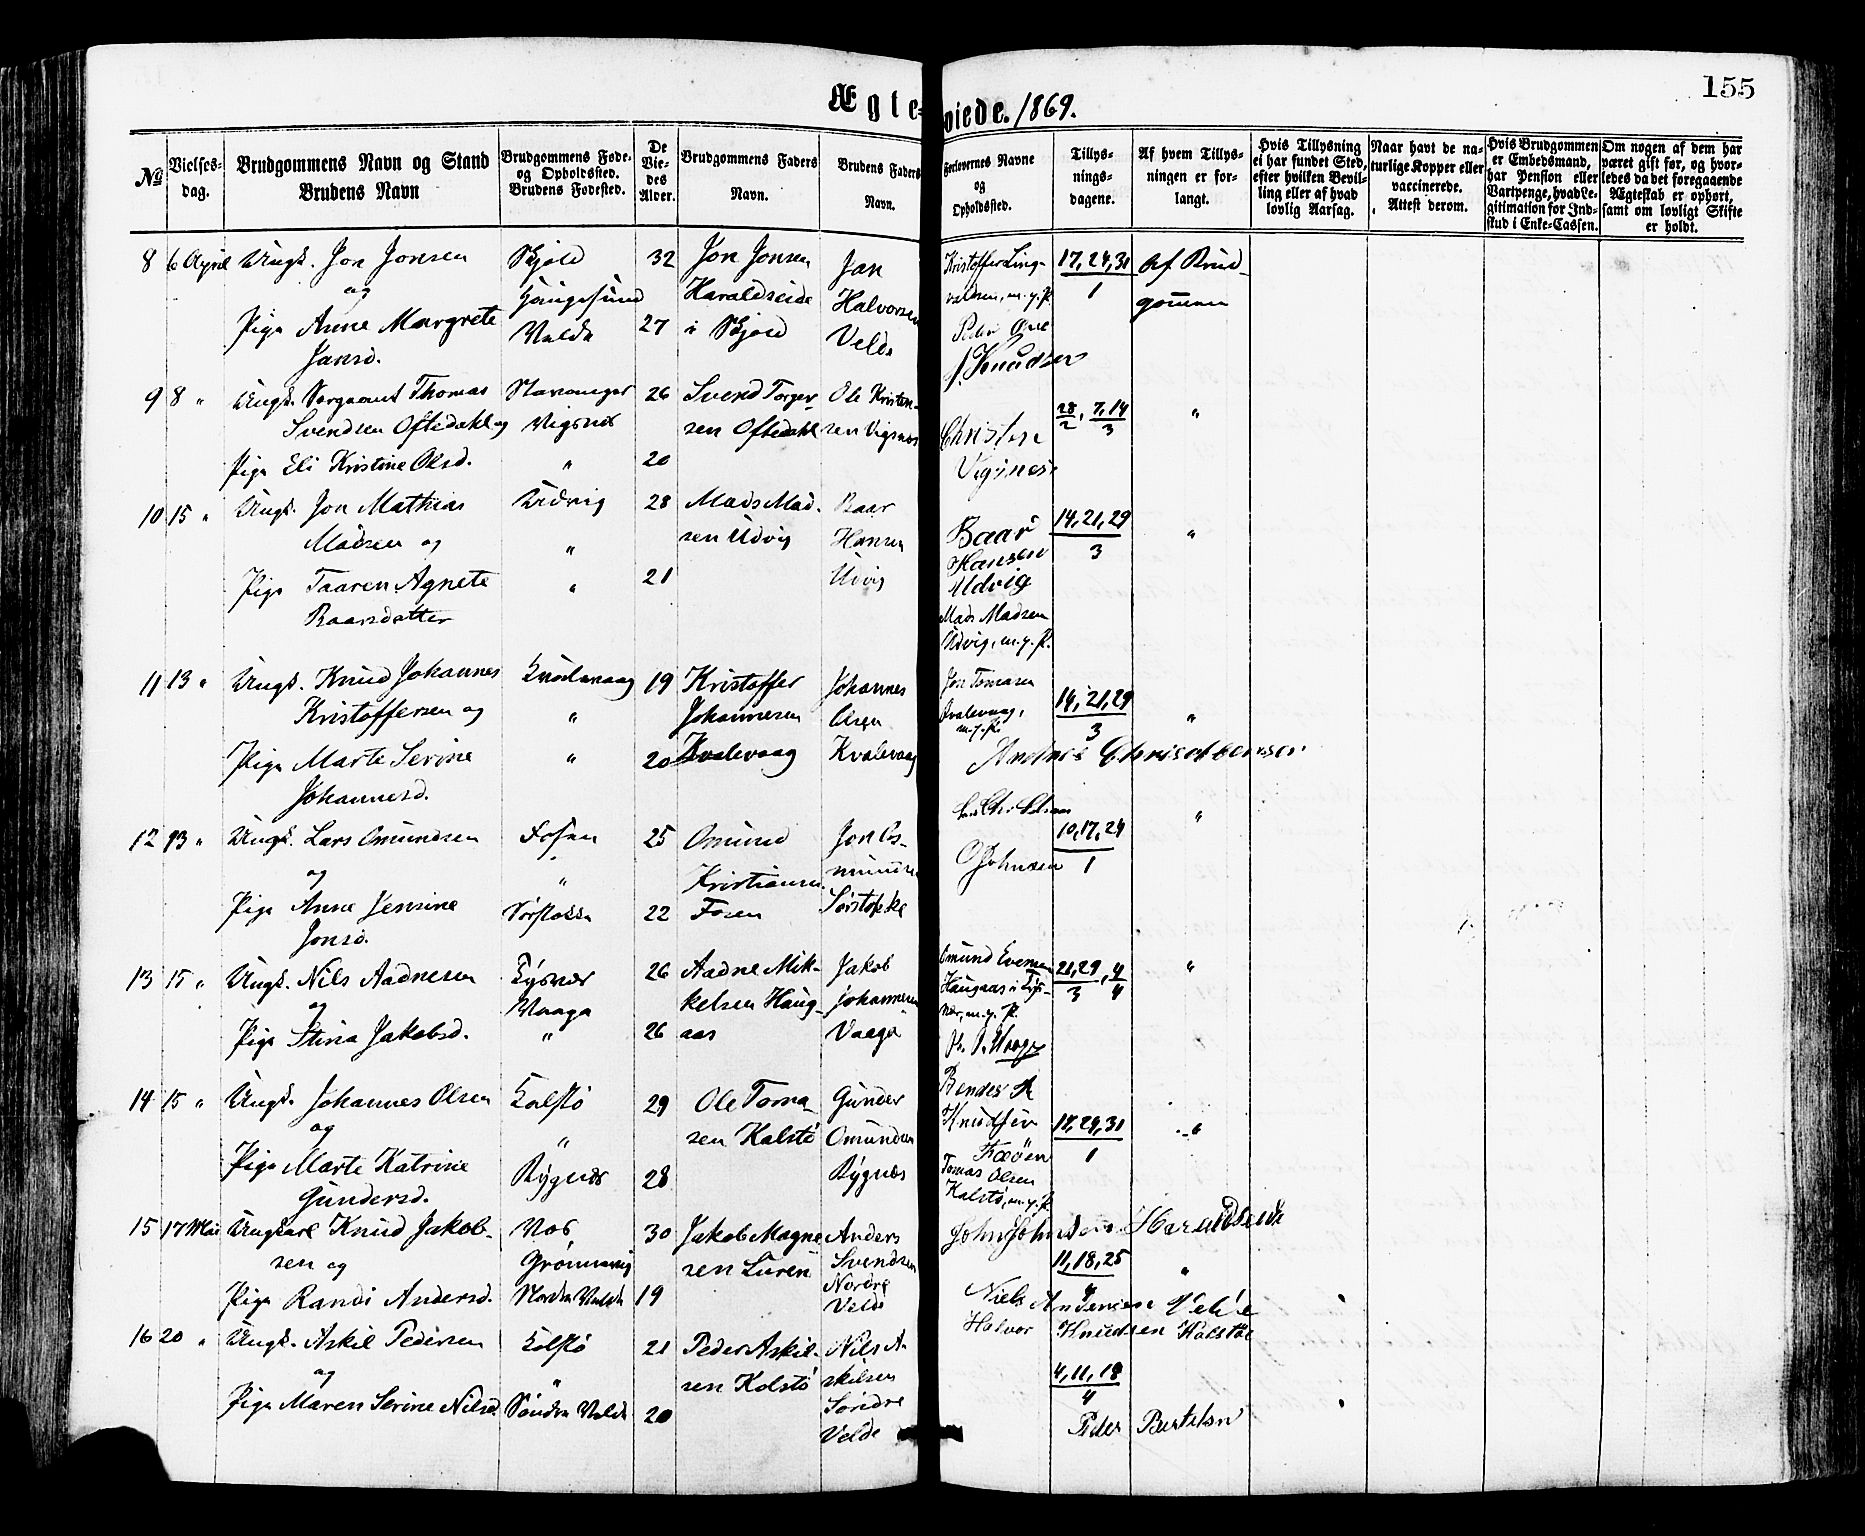 155
Ægteviede. 1869.
№
Vielses-
dag.
Brudgommens Navn og Stand
Brudens Navn
Brudgommens Føde-
og Opholdssted.
Brudens Fødested.
De
Vie-
des
Alder.
Brudgommens Faders
Navn.
Brudens Faders
Navn.
Forlovernes Navne
og
Opholdssted.
Tillys-
nings-
dagene.
Af hvem Tillys-
ningen er for-
langt.
Hvis Tillysning
ei har fundet Sted,
efter hvilken Bevil-
ling eller af hvad
lovlig Aarsag.
Naar havt de na-
turlige Kopper eller
vaccinerede.
Attest derom.
Hvis Brudgommen
er Embedsmand,
har Pension eller
Vartpenge, hvad Le-
gitimation for Ind-
skud i Enke-Cassen.
Om nogen af dem har
været gift før, og hvor-
ledes da det foregaaende
Ægteskab er ophørt,
samt om lovligt Skifte
er holdt.
8 6 April Ungk. Jon Jonsen Skjold 32 Jon Jonsen Jan
og Haugesund Haraldseide Halvorsen
Pige Anne Margrete Velde 27 i Skjold Velde
Jansd.
Kristoffer Ling-
17, 24, 31 Af Brud-
m.f.P. 1 gommen
Peder
J. Knudsen
9 8 " Ungk. Sergeant Thomas Stavanger 26 Svend Torger- Ole Kristen-
Svendsen Oftedahl og Vigsnes sen Oftedahl sen Vigsnes
Pige Eli Kristine Olsd. " 20
28/2, 7, 14/3 "
Christen
Vigsnes
10 15 " Ungk. Jon Mathias Udvig 28 Mads Mad- Baar
Madsen og " sen Udvig Hansen
Pige Taaren Agnete " 21 Udvig
Baarsdatter
Baar 14, 21, 29
Hansen 3 "
Udvig
Mads Madsen
Udvig, m.f.P.
11 13 " Ungk. Knud Johannes Kvalevaag 19 Kristoffer Johannes
Kristoffersen og " Johannesen Olsen
Pige Marte Serine " 20 Kvalevaag Kvalevaag
Johannesd.
Jon Tomasen
Kvalevaag, 14, 21, 29
m.f.P. 3 "
12 13 " Ungk. Lars Omundsen Fosen 25 Omund Jon Os-
og " Kristiansen mundsen
Pige Anne Jensine Sørstokke 22 Fosen Sørstokke
Jonsd.
10, 17, 24 "
O Johnsen 1
13 15 " Ungk. Nils Aadnesen Tysvær 26 Aadne Mik- Jakob
og Vaaga kelsen Haug- Johannesen
Pige Stina Jakobsd. " 26 aas Vaaga
Omund Evensen 21, 29, 4 "
Haugaas i Tys- 3 4
vær, m.f.P.
14 15 " Ungk. Johannes Olsen Kolstø 29 Ole Toma- Gunder
og " sen Kolstø Omundsen
Pige Marte Katrine Bygnes 28 Bygnes
Gundersd.
Knudsen 17, 24, 31 "
Feøen 1
Tomas Olsen
Kolstø, m.f.P.
15 17 Mai Ungkarl Knud Jakob- Vos 30 Jakob Magne- Anders
sen og Grønnevig sen Luren Svendsen
Pige Randi Andersd. Nordre Velde 19 Nordre
Velde
11, 18, 25 "
4
Niels Andersen Velde
16 20 " Ungk. Askil Pedersen Kolstø 21 Peder Askil- Nils A-
og " sen Kolstø skilsen
Pige Maren Serine Nilsd. Søndre Velde 20 Søndre
Velde
Halvor Knudsen Kolstøe
4, 11, 18
4
Peder Bertelsen